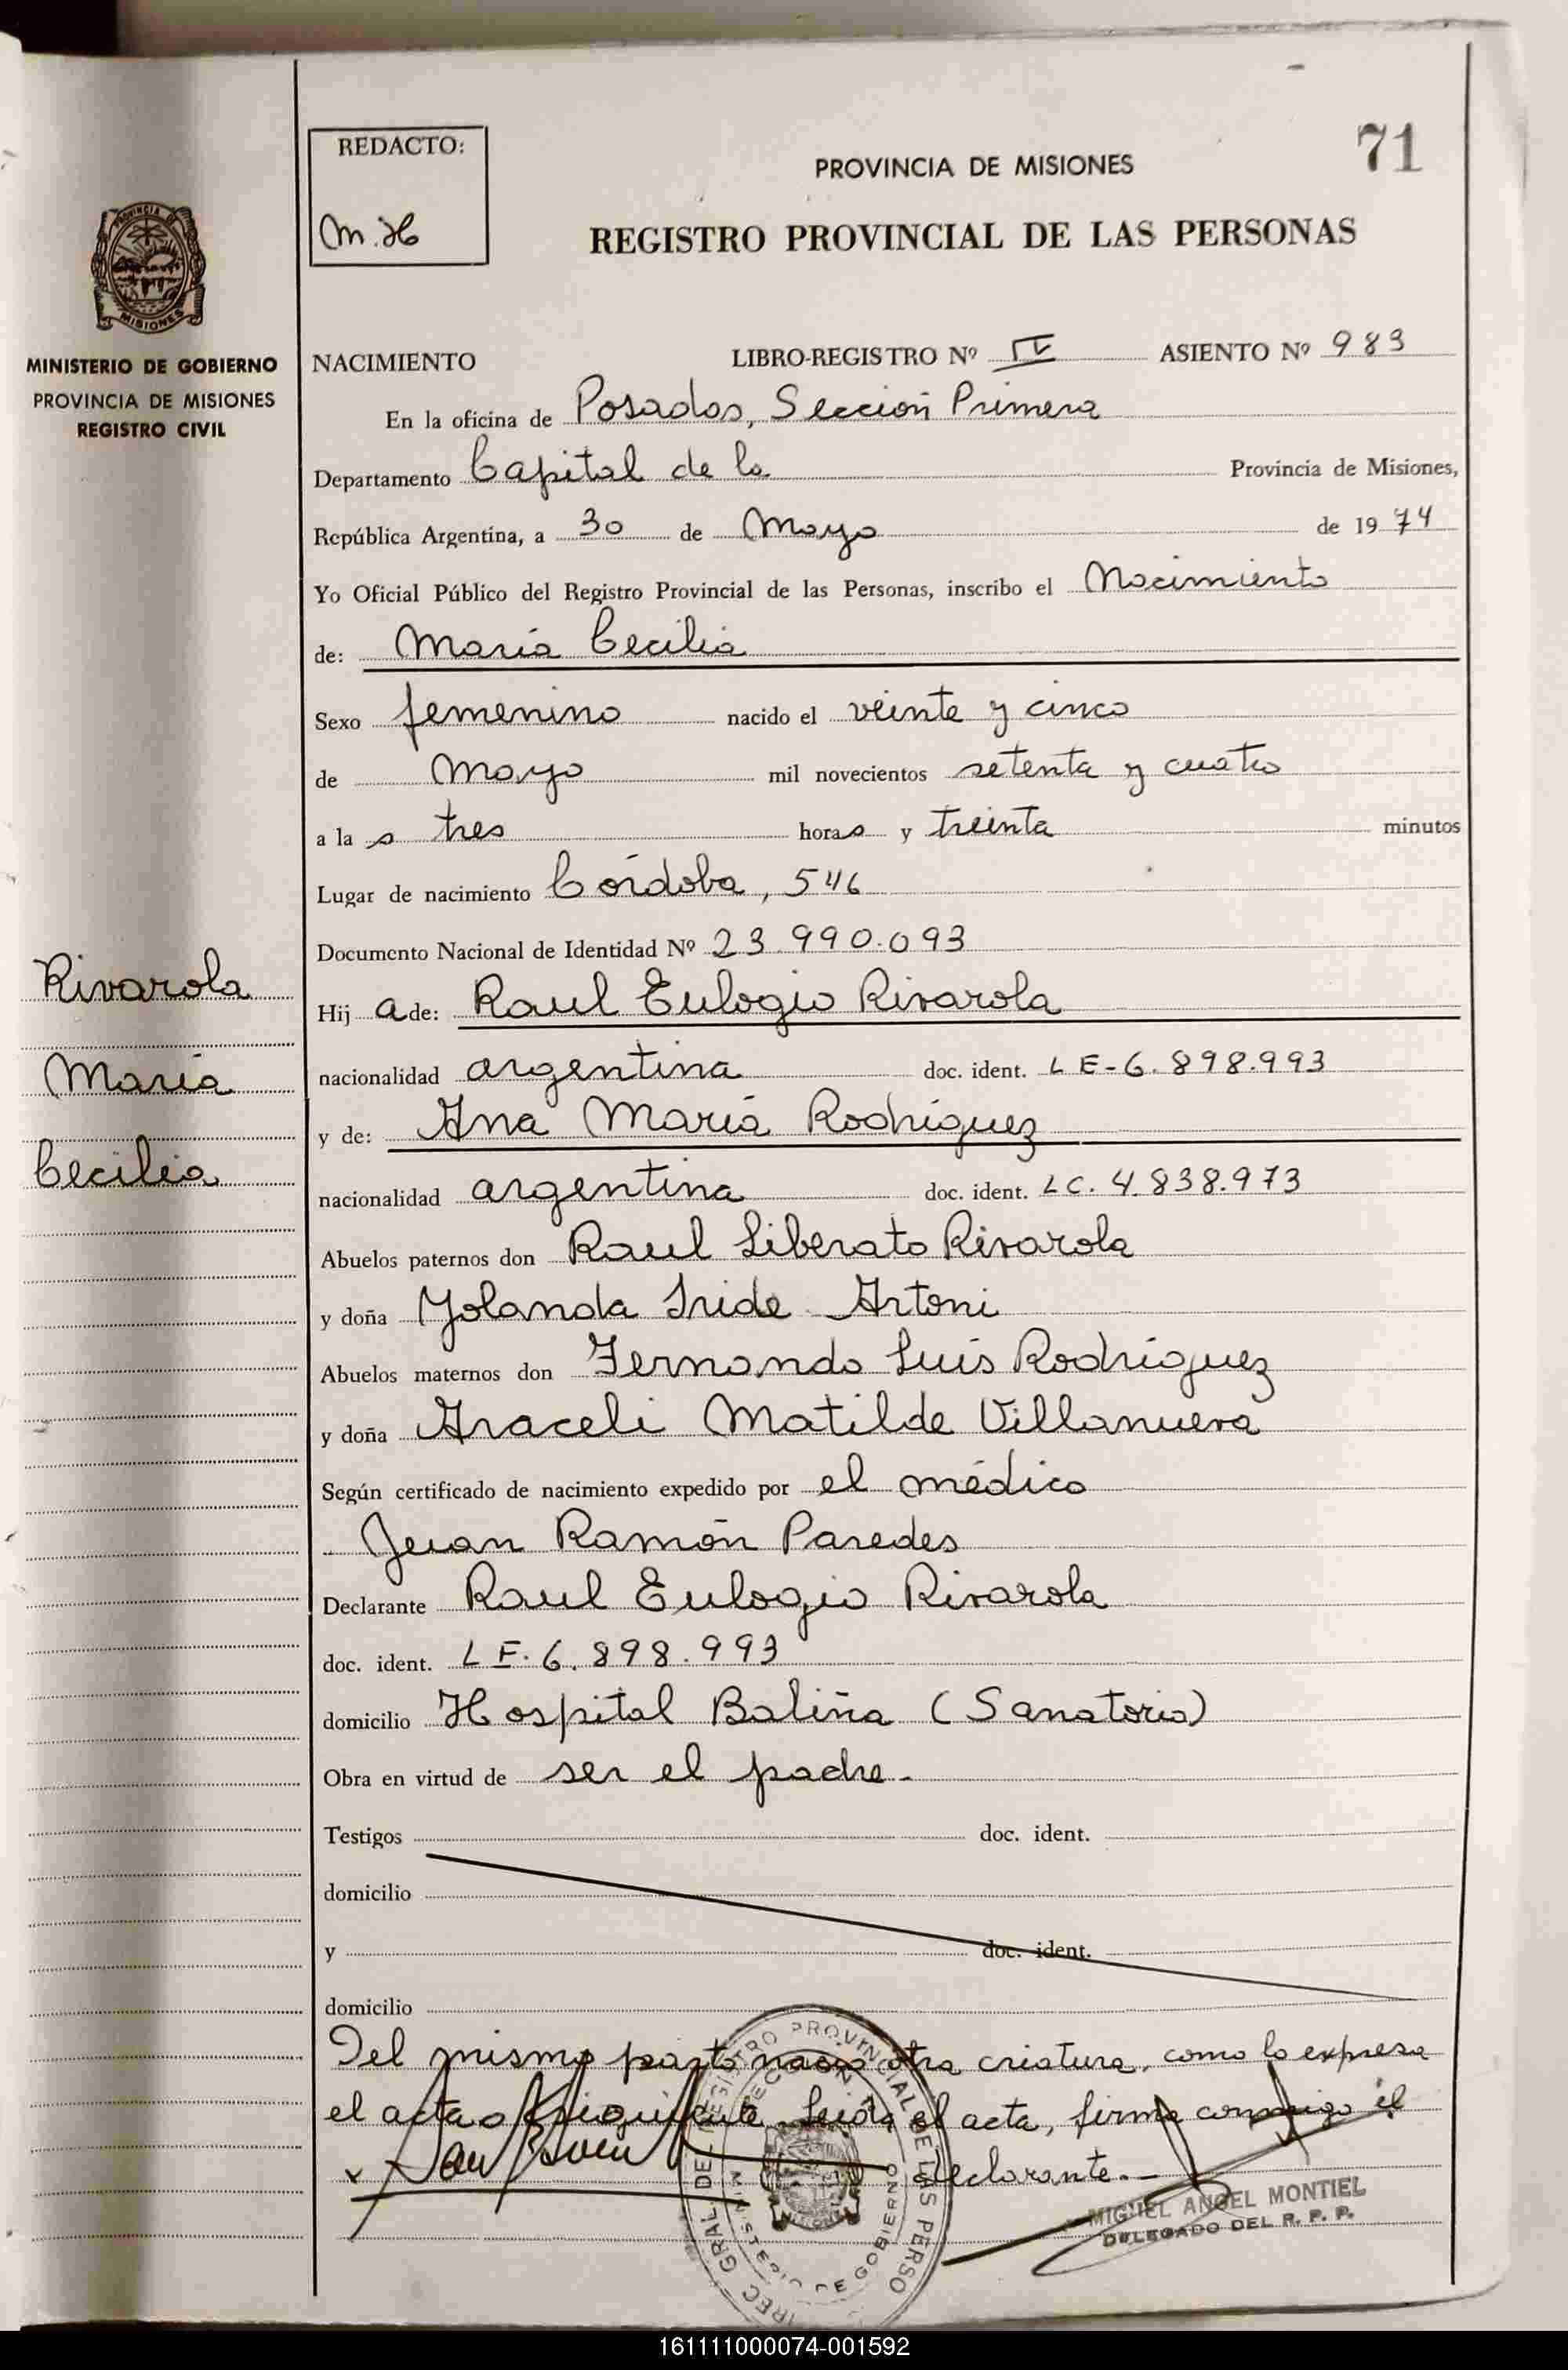 REDACTO:
M.H
PROVINCIA DE MISIONES
71
REGISTRO PROVINCIAL DE LAS PERSONAS
PROVINCIA DE
MISIONES
MINISTERIO DE GOBIERNO
PROVINCIA DE MISIONES
REGISTRO CIVIL
NACIMIENTO LIBRO-REGISTRO Nº IV ASIENTO Nº 983
En la oficina de Posadas, Sección Primera
Departamento Capital de la Provincia de Misiones,
República Argentina, a 30 de Mayo de 1974
Yo Oficial Público del Registro Provincial de las Personas, inscribo el Nacimiento
de: María Cecilia
Sexo femenino nacido el veinte y cinco
de Mayo mil novecientos setenta y cuatro
a la s tres horas y treinta minutos
Lugar de nacimiento Córdoba, 546
Documento Nacional de Identidad Nº 23.990.093
Rivarola
María
Cecilia
Hij a de: Raul Eulogio Rivarola
nacionalidad argentina doc. ident. LE-6.898.993
y de: Ana María Rodríguez
nacionalidad argentina doc. ident. LC. 4.838.973
Abuelos paternos don Raul Liberato Rivarola
y doña Yolanda Iride Artoni
Abuelos maternos don Fernando Luis Rodríguez
y doña Araceli Matilde Villanueva
Según certificado de nacimiento expedido por el médico
Juan Ramón Paredes
Declarante Raul Eulogio Rivarola
doc. ident. LE. 6.898.993
domicilio Hospital Baliña (Sanatorio)
Obra en virtud de ser el padre.-
Testigos doc. ident.
domicilio
y doc. ident.
domicilio
Del mismo parto nació otra criatura, como lo expresa
el acta siguiente. Leída el acta, firma conmigo el
declarante.-
MIGUEL ANGEL MONTIEL
DELEGADO DEL R. P. P.
161111000074-001592